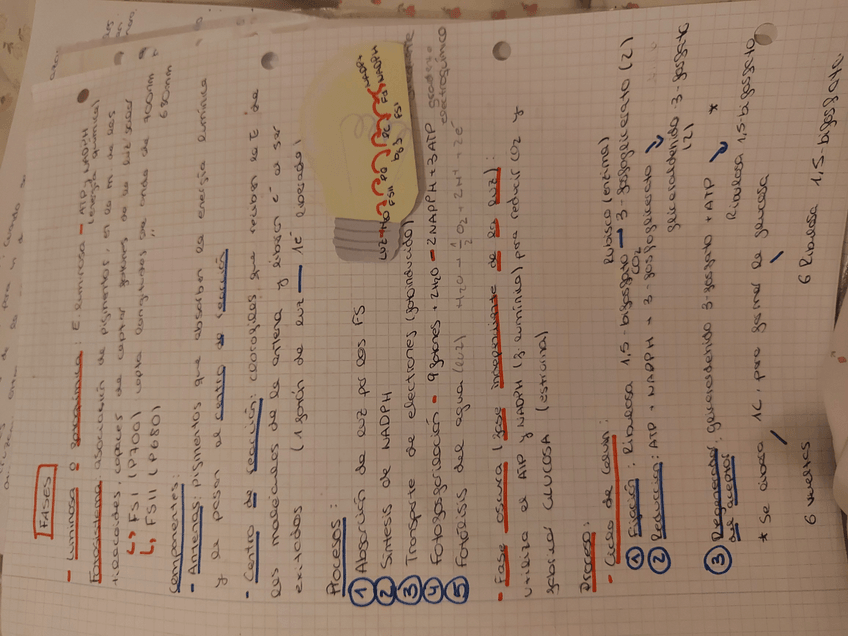 FASES
- Luminosa o fotoquímica: E. luminosa → ATP y NADPH
(energía química)
Fotosistema: asociación de pigmentos, en la m de los
tilacoides, capaces de captar fotones de la luz solar
↳ FSI (P700) capta longitudes de onda de 700nm
↳ FSII (P680) " 680nm
Componentes:
- Antenas: pigmentos que absorben la energía lumínica
y la pasan al centro de reacción
- Centro de reacción: clorofilas que reciben la E de
las moléculas de la antena y liberan e⁻ al ser
excitadas (1 fotón de luz → 1e⁻ excitado)
Procesos:
1 Absorción de luz por los FS
2 Síntesis de NADPH
3 Transporte de electrones (fotoinducido)
4 Fotofosforilación → 9 fotones + 2H₂O → 2NADPH + 3ATP gradiente
electroquímico
5 Fotólisis del agua (luz) H₂O → ½O₂ + 2H⁺ + 2e⁻
luz H₂O FSII PQ b₆f PC FSI Fd NADPH
NADP+
- Fase oscura (fase independiente de la luz):
utiliza el ATP y NADPH (f. lumínica) para reducir CO₂ y
formar GLUCOSA (estroma)
Proceso:
- Ciclo de Calvin: Rubisco (enzima)
1 Fijación: Ribulosa 1,5-bifosfato → 3-fosfoglicerato (2)
CO₂
2 Reducción: ATP + NADPH + 3-fosfoglicerato
gliceraldehído 3-fosfato
(2)
3 Regeneración: gliceraldehído 3-fosfato + ATP *
del aceptor Ribulosa 1,5-bifosfato
* Se ahorra 1C para formar la glucosa
6 vueltas 6 Ribulosa 1,5-bifosfato